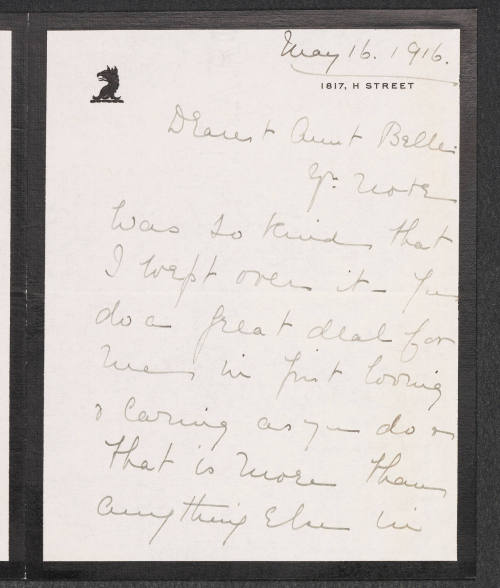 May 16. 1916.
1817, H STREET
Dearest Aunt Belle
Yr. note
was so kind that
I wept over it - You
do a great deal for
me in just loving
& caring as you do &
that is more than
anything else in